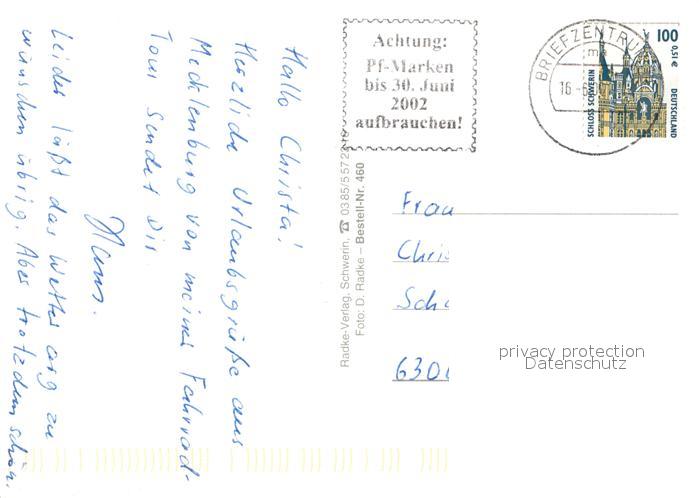 Hallo Christa!
Herzliche Urlaubsgrüße aus
Mecklenburg von meiner Fahrrad-
Tour sendet Dir
Hans.
Leider läßt das Wetter arg zu
wünschen übrig. Aber trotzdem schön.
Achtung:
Pf-Marken
bis 30. Juni
2002
aufbrauchen!
BRIEFZENTRUM
16 -6
100
0,51€
SCHLOSS SCHWERIN
DEUTSCHLAND
Radke-Verlag, Schwerin, ☎ 0385/5572
Foto: D. Radke – Bestell-Nr. 460
Frau
Chris
Sch
630
privacy protection
Datenschutz